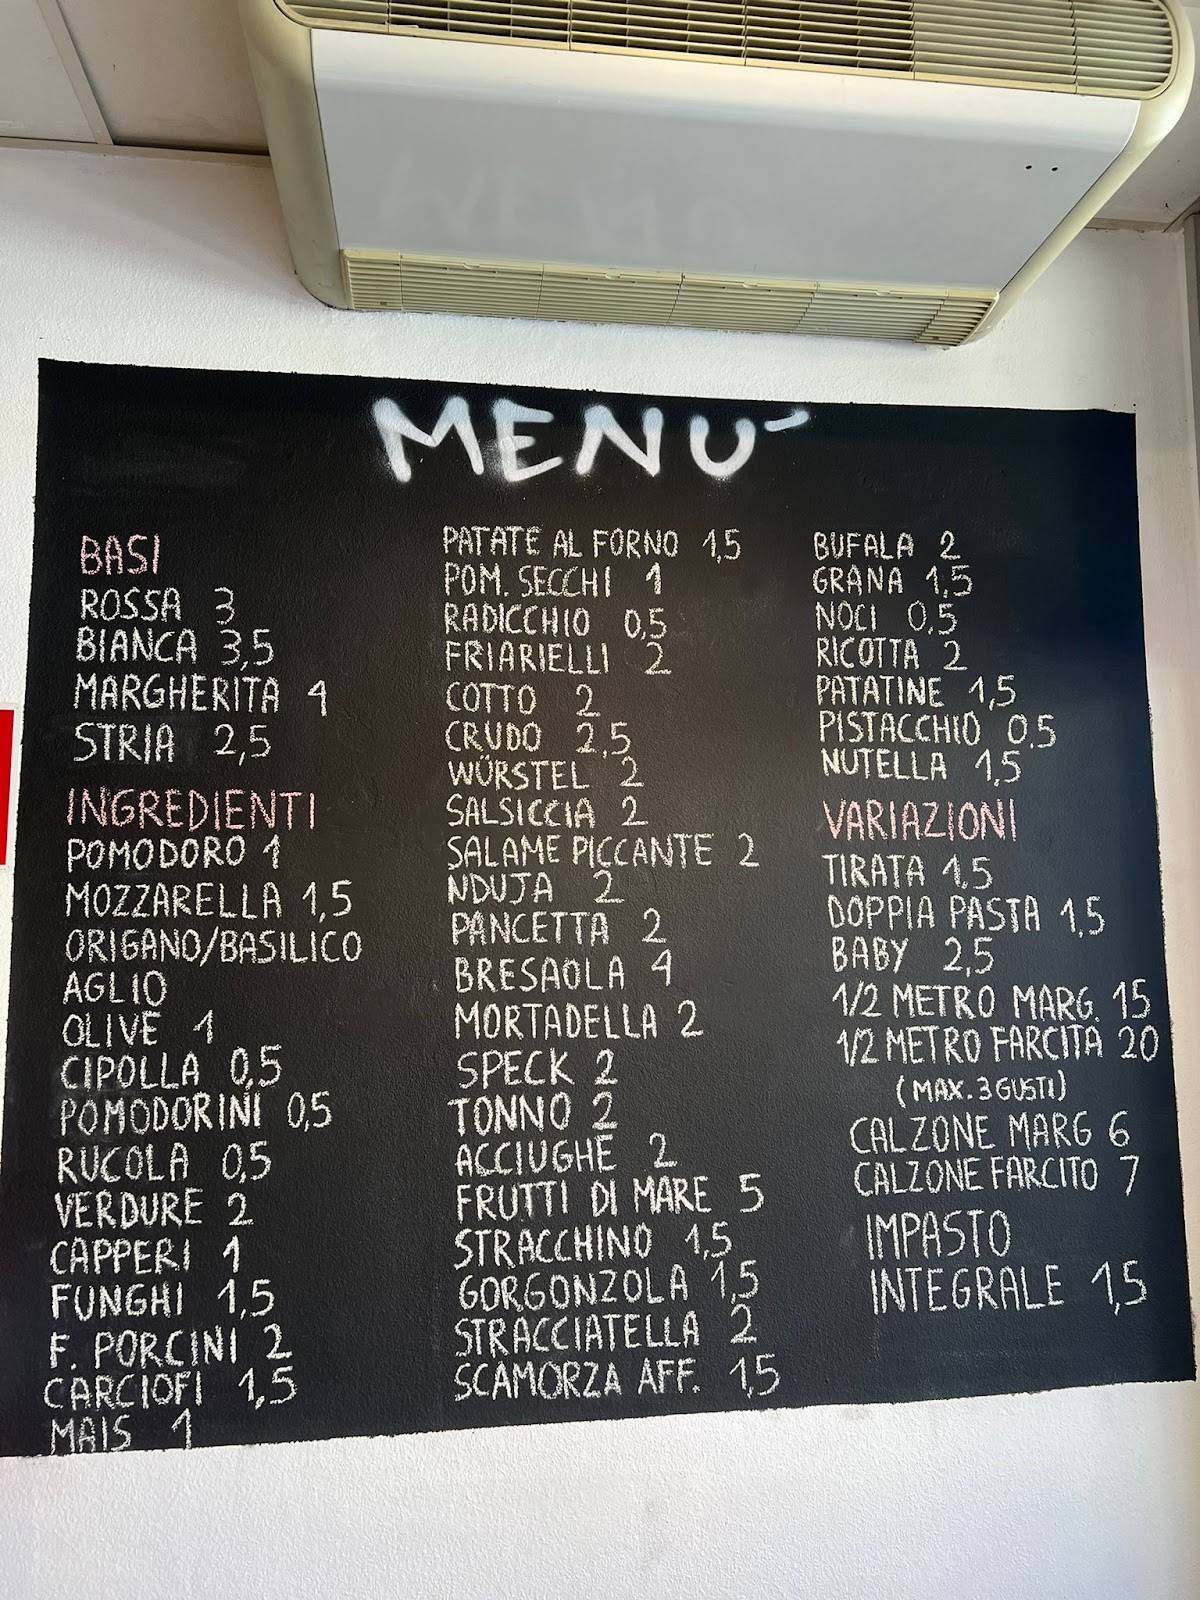 MENU'
BASI
ROSSA 3
BIANCA 3,5
MARGHERITA 4
STRIA 2,5
INGREDIENTI
POMODORO 1
MOZZARELLA 1,5
ORIGANO/BASILICO
AGLIO
OLIVE 1
CIPOLLA 0,5
POMODORINI 0,5
RUCOLA 0,5
VERDURE 2
CAPPERI 1
FUNGHI 1,5
F. PORCINI 2
CARCIOFI 1,5
MAIS 1
PATATE AL FORNO 1,5
POM. SECCHI 1
RADICCHIO 0,5
FRIARIELLI 2
COTTO 2
CRUDO 2,5
WÜRSTEL 2
SALSICCIA 2
SALAME PICCANTE 2
NDUJA 2
PANCETTA 2
BRESAOLA 4
MORTADELLA 2
SPECK 2
TONNO 2
ACCIUGHE 2
FRUTTI DI MARE 5
STRACCHINO 1,5
GORGONZOLA 1,5
STRACCIATELLA 2
SCAMORZA AFF. 1,5
BUFALA 2
GRANA 1,5
NOCI 0,5
RICOTTA 2
PATATINE 1,5
PISTACCHIO 0,5
NUTELLA 1,5
VARIAZIONI
TIRATA 1,5
DOPPIA PASTA 1,5
BABY 2,5
1/2 METRO MARG. 15
1/2 METRO FARCITA 20
(MAX. 3 GUSTI)
CALZONE MARG 6
CALZONE FARCITO 7
IMPASTO
INTEGRALE 1,5